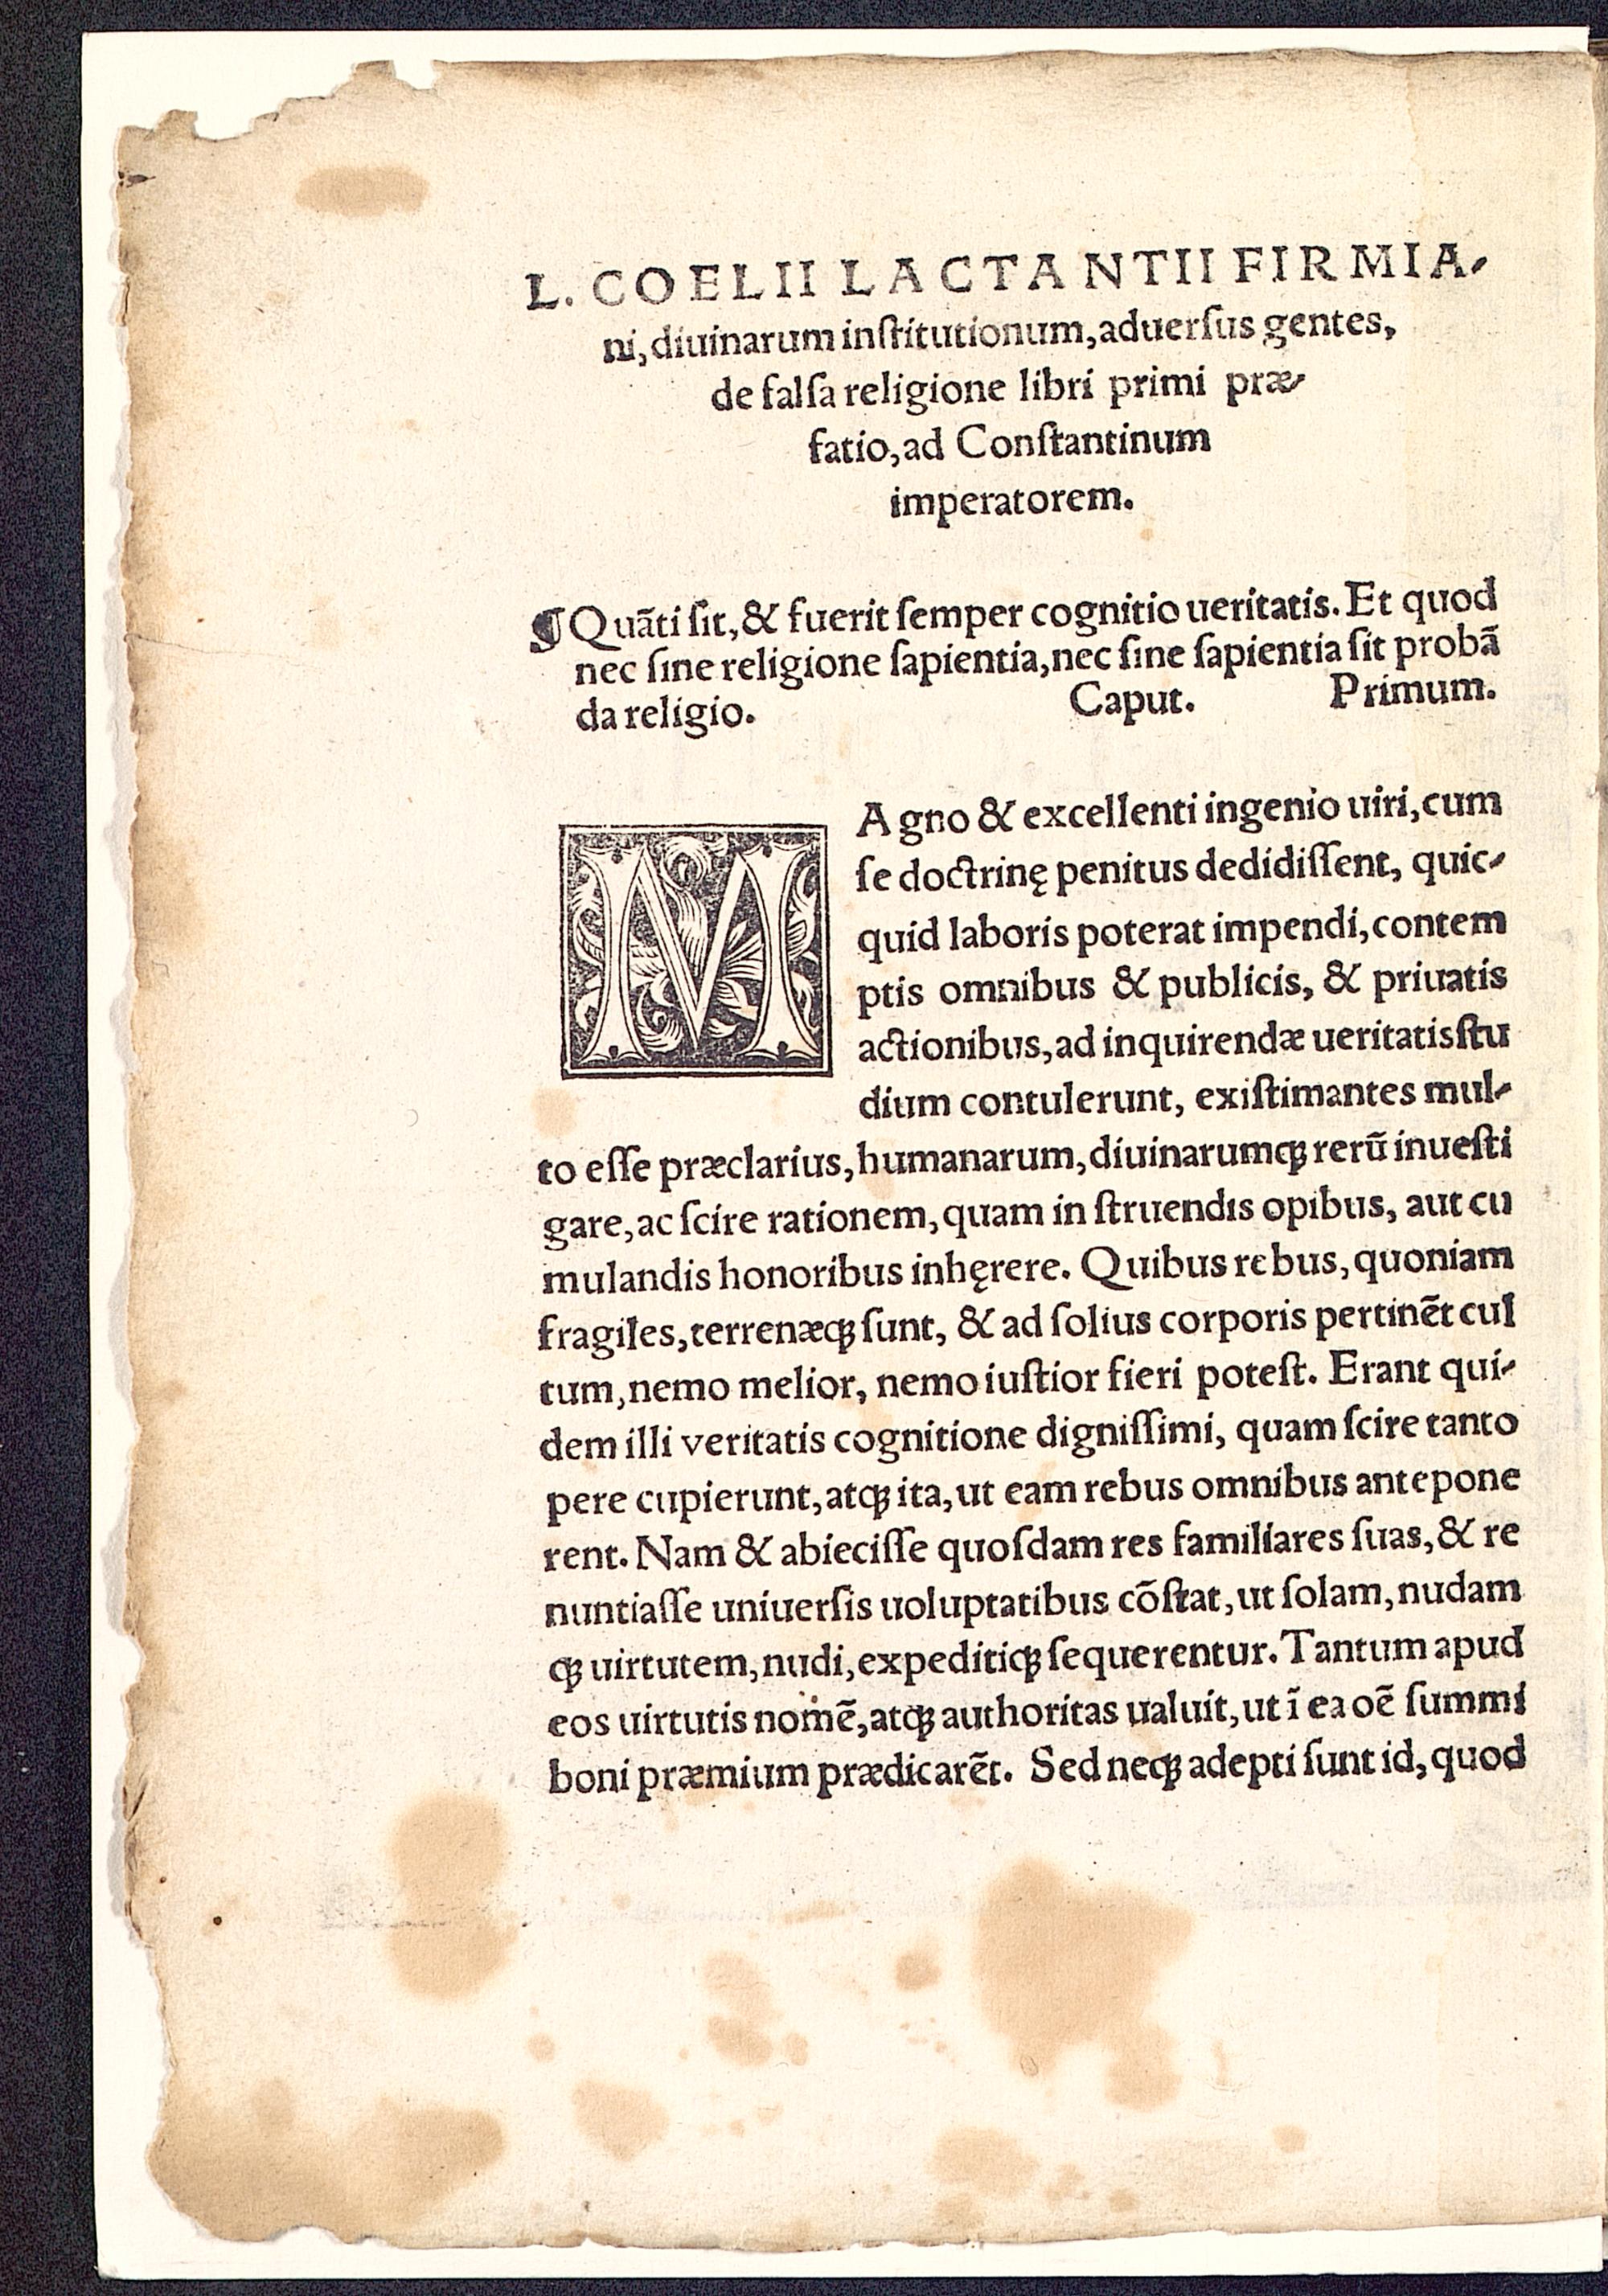 L. COELII LACTANTII FIRMIA-
ni, diuinarum inſtitutionum, aduerſus gentes,
de falſa religione libri primi præ-
fatio, ad Conſtantinum
imperatorem.
¶ Quãti ſit, & fuerit ſemper cognitio ueritatis. Et quod
nec ſine religione ſapientia, nec ſine ſapientia ſit probã
da religio. Caput. Primum.
MAgno & excellenti ingenio uiri, cum
ſe doctrinę penitus dedidiſſent, quic-
quid laboris poterat impendi, contem
ptis omnibus & publicis, & priuatis
actionibus, ad inquirendæ ueritatis ſtu
dium contulerunt, exiſtimantes mul-
to eſſe præclarius, humanarum, diuinarumqꝫ rerũ inueſti
gare, ac ſcire rationem, quam in ſtruendis opibus, aut cu
mulandis honoribus inhęrere. Quibus rebus, quoniam
fragiles, terrenæqꝫ ſunt, & ad ſolius corporis pertinẽt cul
tum, nemo melior, nemo iuſtior fieri poteſt. Erant qui-
dem illi veritatis cognitione digniſſimi, quam ſcire tanto
pere cupierunt, atqꝫ ita, ut eam rebus omnibus antepone
rent. Nam & abieciſſe quoſdam res familiares ſuas, & re
nuntiaſſe uniuerſis uoluptatibus cõſtat, ut ſolam, nudam
qꝫ uirtutem, nudi, expeditiqꝫ ſequerentur. Tantum apud
eos uirtutis nomẽ, atqꝫ authoritas ualuit, ut ĩ ea oẽ ſummi
boni præmium prædicarẽt. Sed neqꝫ adepti ſunt id, quod